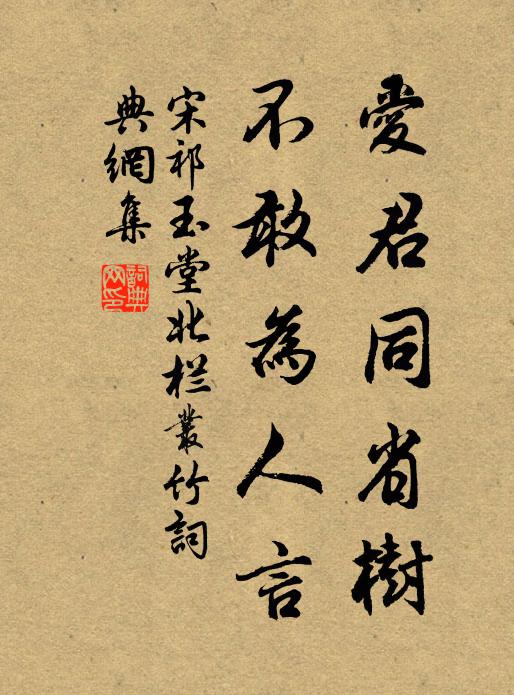 愛君同省樹
不敢為人言
宋祁玉堂北栏叢竹詞
典網集
詞典網印